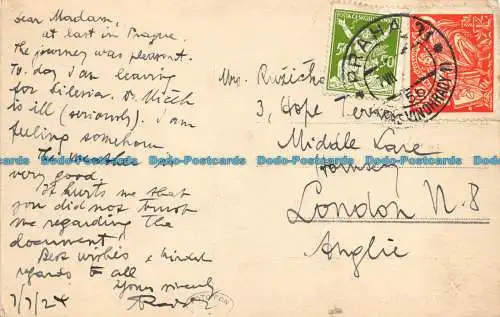 Dear Madam,
at last in Prague.
the journey was pleasant.
To-day I am leaving
for Silesia. Dr.
is ill (seriously). I am
feeling somehow
The weather is
very good.
It hurts me that
you did not
me regarding the
document.
Best wishes & kindest
regards to all
Yours sincerely
7/7/24
POŠTA ČESKOSLOVENSKÁ
50 50
PRAHA
VINOHRADY
Mrs. Růžička
3, Hope Terrace
Middle Lane
Hornsey
London N. 8
Anglie
Dodo-Postcards Dodo-Postcards Dodo-Postcards Dodo-Postcards Dodo-Postcards